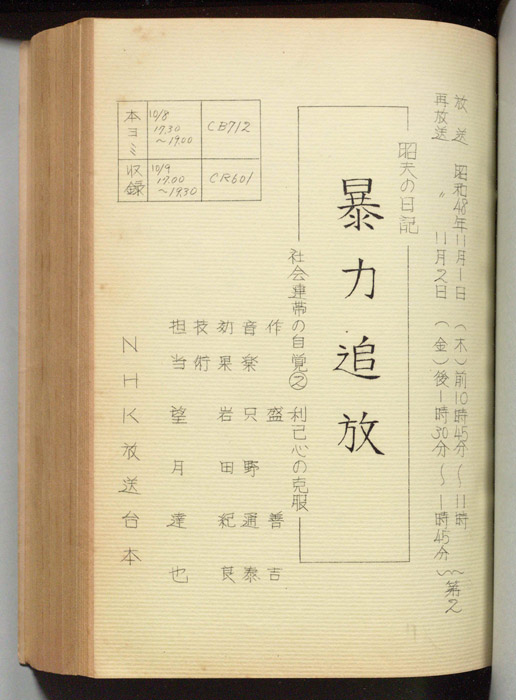 放送 昭和48年11月1日 (木)前10時45分〜11時
再放送 〃 11月2日 (金)後1時30分〜1時45分 〜第2
昭夫の日記
暴力追放
社会連帯の自覚② 利己心の克服
作 盛善吉
音楽 只野通泰
効果 岩田紀良
技術
担当 望月達也
NHK放送台本
本ヨミ 10/8 17.30〜19.00 CB712
収録 10/9 17.00〜19.30 CR601